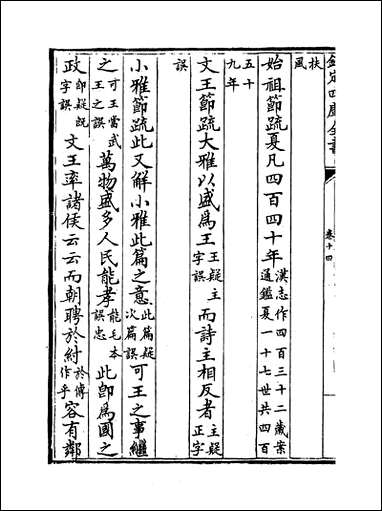 欽定四庫全書
卷十四
扶風
始祖節疏夏凡四百四十年漢志作四百三十二歲案通鑑夏一十七世共四百
五十九年
文王節疏大雅以盛為王王疑主字誤而詩主相反者主疑正字
誤
小雅節疏此又解小雅此篇之意此篇疑次篇誤可王之事繼
之可王當武王之誤萬物盛多人民能孝能毛本誤忠此即為國之
政即疑既字誤文王率諸侯云云而朝聘於紂於傳作乎容有鄰